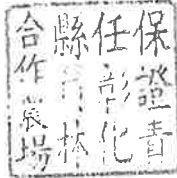 保證責
任彰化
縣林
合作農場